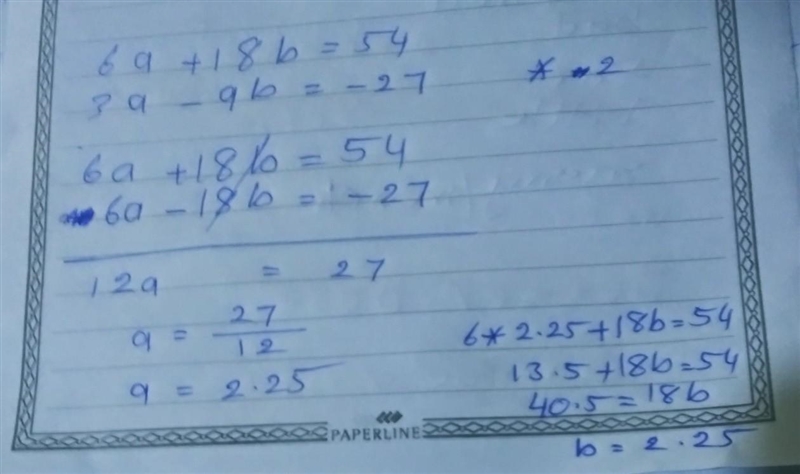 6a + 18b = 54
3a - 9b = -27 * 2
6a + 18b = 54
6a - 18b = -27
12a = 27
a = 27/12
a = 2.25
6*2.25+18b=54
13.5+18b=54
40.5=18b
b = 2.25
PAPERLINE